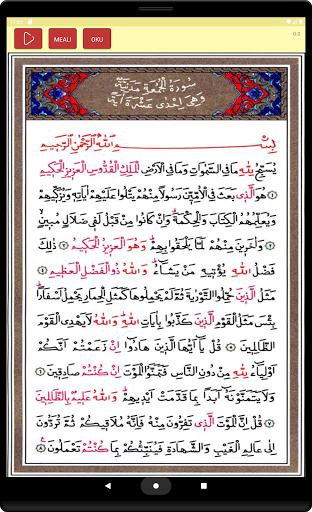 MEALİ
OKU
سُورَةُ الْجُمُعَةِ مَدَنِيَّةٌ
وَهِيَ اِحْدٰى عَشْرَةَ اٰيَةً
بِسْمِ اللّٰهِ الرَّحْمٰنِ الرَّحِيمِ
يُسَبِّحُ لِلّٰهِ مَا فِي السَّمٰوَاتِ وَمَا فِي الْاَرْضِ الْمَلِكِ الْقُدُّوسِ الْعَزِيزِ الْحَكِيمِ
هُوَ الَّذِي بَعَثَ فِي الْاُمِّيّ۪نَ رَسُولًا مِنْهُمْ يَتْلُوا عَلَيْهِمْ اٰيَاتِهِ وَيُزَكِّيهِمْ
وَيُعَلِّمُهُمُ الْكِتَابَ وَالْحِكْمَةَ وَاِنْ كَانُوا مِنْ قَبْلُ لَفِي ضَلَالٍ مُبِينٍ
وَاٰخَرِينَ مِنْهُمْ لَمَّا يَلْحَقُوا بِهِمْ وَهُوَ الْعَزِيزُ الْحَكِيمُ ذٰلِكَ
فَضْلُ اللّٰهِ يُؤْتِيهِ مَنْ يَشَاءُ وَاللّٰهُ ذُو الْفَضْلِ الْعَظِيمِ
مَثَلُ الَّذِينَ حُمِّلُوا التَّوْرٰيةَ ثُمَّ لَمْ يَحْمِلُوهَا كَمَثَلِ الْحِمَارِ يَحْمِلُ اَسْفَارًا
بِئْسَ مَثَلُ الْقَوْمِ الَّذِينَ كَذَّبُوا بِاٰيَاتِ اللّٰهِ وَاللّٰهُ لَا يَهْدِي الْقَوْمَ
الظَّالِمِينَ قُلْ يَا اَيُّهَا الَّذِينَ هَادُوا اِنْ زَعَمْتُمْ اَنَّكُمْ
اَوْلِيَاءُ لِلّٰهِ مِنْ دُونِ النَّاسِ فَتَمَنَّوُا الْمَوْتَ اِنْ كُنْتُمْ صَادِقِينَ
وَلَا يَتَمَنَّوْنَهُ اَبَدًا بِمَا قَدَّمَتْ اَيْدِيهِمْ وَاللّٰهُ عَلِيمٌ بِالظَّالِمِينَ
قُلْ اِنَّ الْمَوْتَ الَّذِي تَفِرُّونَ مِنْهُ فَاِنَّهُ مُلَاقِيكُمْ ثُمَّ تُرَدُّونَ
اِلٰى عَالِمِ الْغَيْبِ وَالشَّهَادَةِ فَيُنَبِّئُكُمْ بِمَا كُنْتُمْ تَعْمَلُونَ